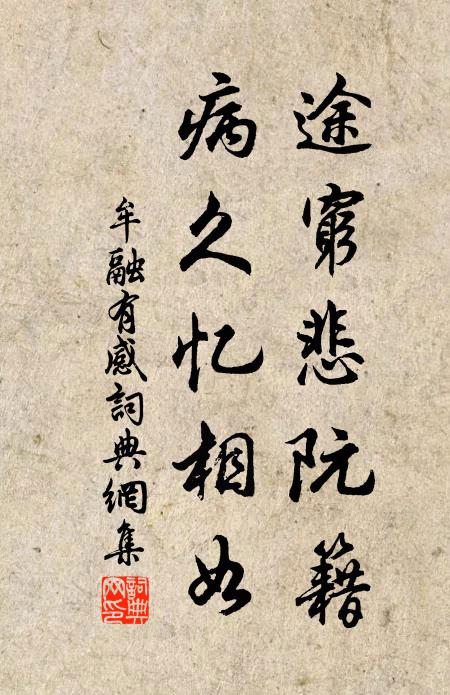 途窮悲阮籍
病久忆相如
牟融有感詞典網集
詞典網印